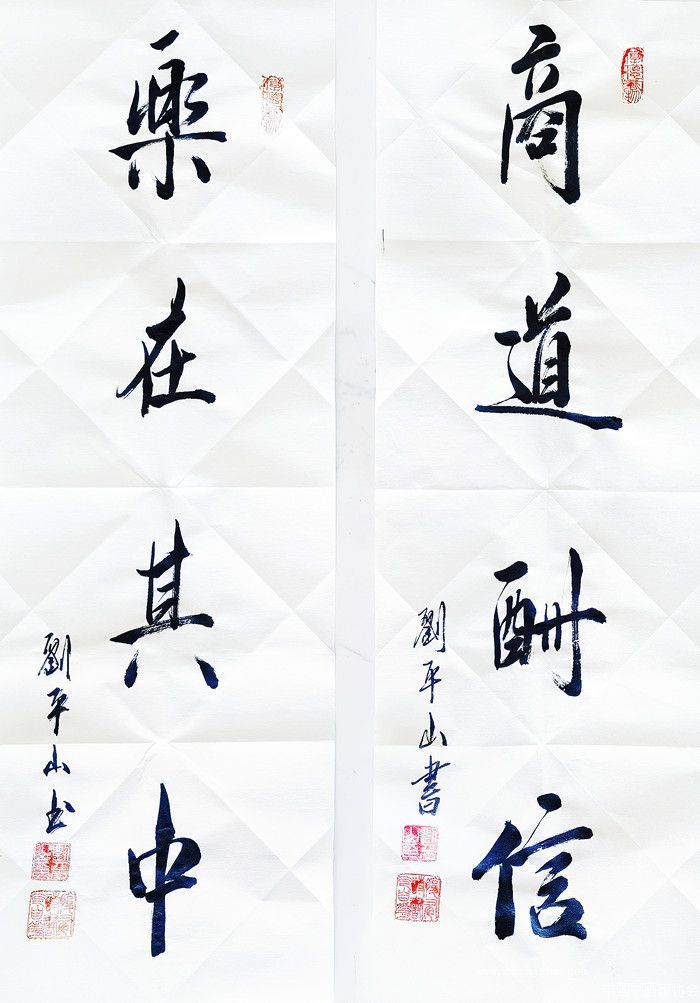 商道酬信
劉平山書
樂在其中
劉平山书